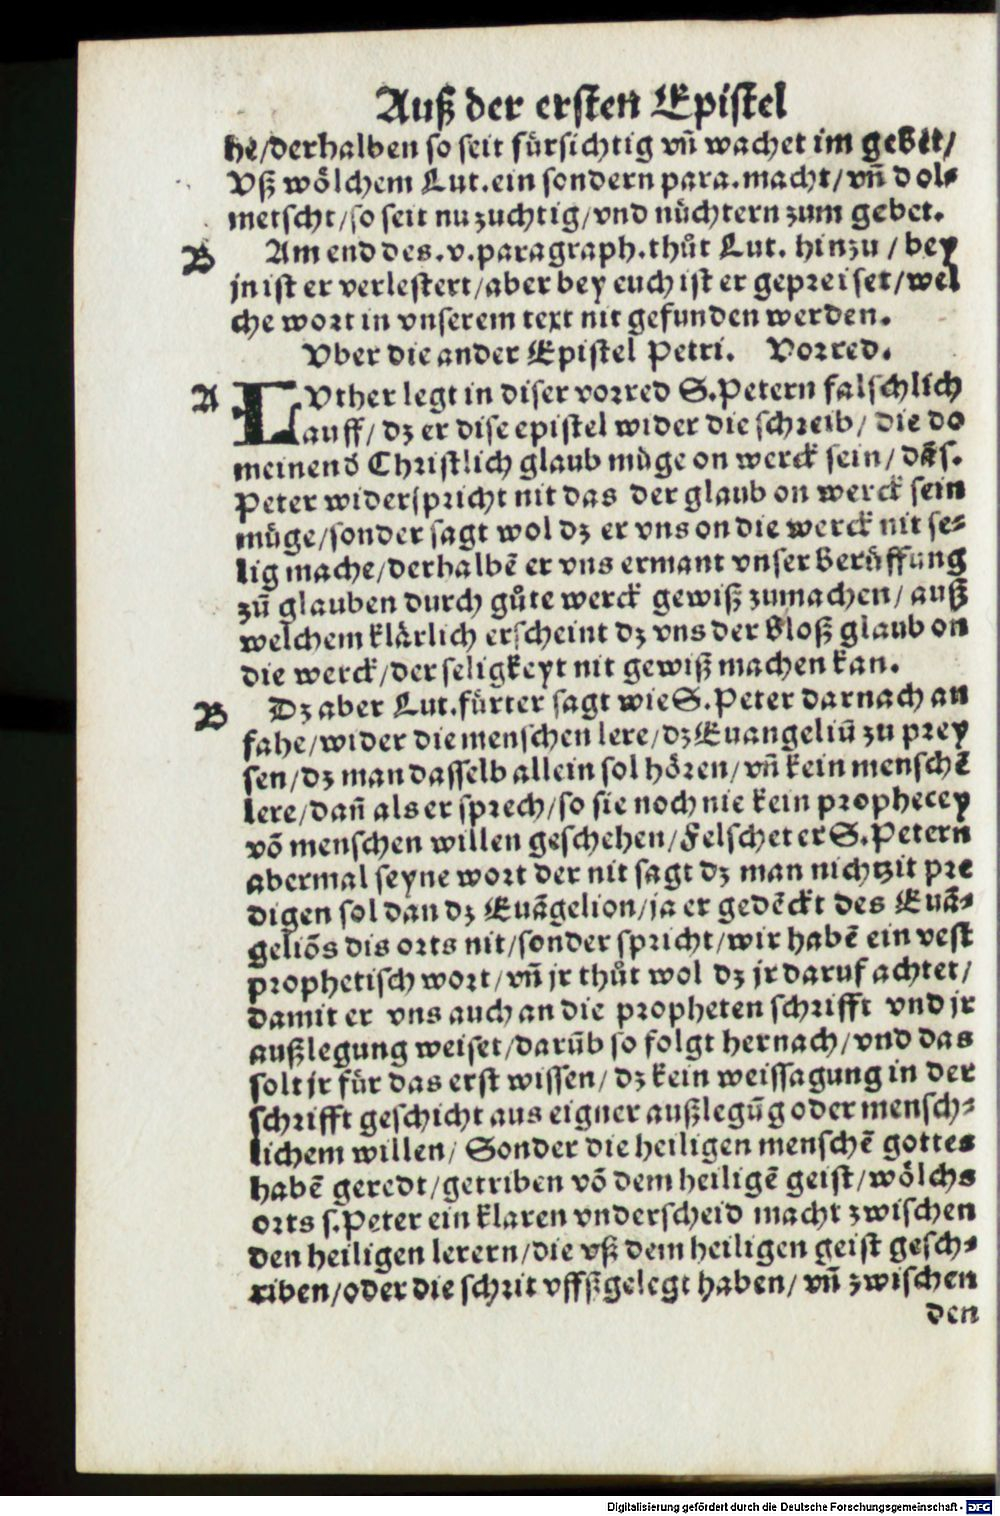 Auß der ersten Epistel
he/derhalben so seit fürsichtig vñ wachet im gebet/
vß wölchem Lut. ein sondern para. macht/vñ dol-
metscht/so seit nu zuchtig/vnd nüchtern zum gebet.
B Am end des .v. paragraph. thůt Lut. hinzu/bey
jn ist er verlestert/aber bey euch ist er gepreiset/wel
che wort in vnserem text nit gefunden werden.
Vber die ander Epistel Petri. Vorred.
A LVther legt in diser vorred S. Petern falschlich
auff/dz er dise epistel wider die schreib/die do
meinend Christlich glaub müge on werck sein/dañ s.
Peter widerspricht nit das der glaub on werck sein
müge/sonder sagt wol dz er vns on die werck nit se-
lig mache/derhalbē er vns ermant vnser berüffung
zū glauben durch gůte werck gewiß zumachen/auß
welchem klärlich erscheint dz vns der bloß glaub on
die werck/der seligkeyt nit gewiß machen kan.
B Dz aber Lut. fürter sagt wie S. Peter darnach an
fahe/wider die menschen lere/dz Euangeliū zu prey
sen/dz man dasselb allein sol hören/vñ kein menschē
lere/dañ als er sprech/so sie noch nie kein prophecey
vō menschen willen geschehen/Felschet er S. Petern
abermal seyne wort der nit sagt dz man nichtzit pre
digen sol dan dz Euāgelion/ja er gedēckt des Euā-
geliōs dis orts nit/sonder spricht/wir habē ein vest
prophetisch wort/vñ jr thůt wol dz jr daruf achtet/
damit er vns auch an die propheten schrifft vnd jr
außlegung weiset/darūb so folgt hernach/vnd das
solt jr für das erst wissen/dz kein weissagung in der
schrifft geschicht aus eigner außlegūg oder mensch-
lichem willen/Sonder die heiligen menschē gottes
habē geredt/getriben vō dem heiligē geist/wölchs
orts s. Peter ein klaren vnderscheid macht zwischen
den heiligen lerern/die vß dem heiligen geist gesch-
riben/oder die schrit vffßgelegt haben/vñ zwischen
den
Digitalisierung gefördert durch die Deutsche Forschungsgemeinschaft - DFG